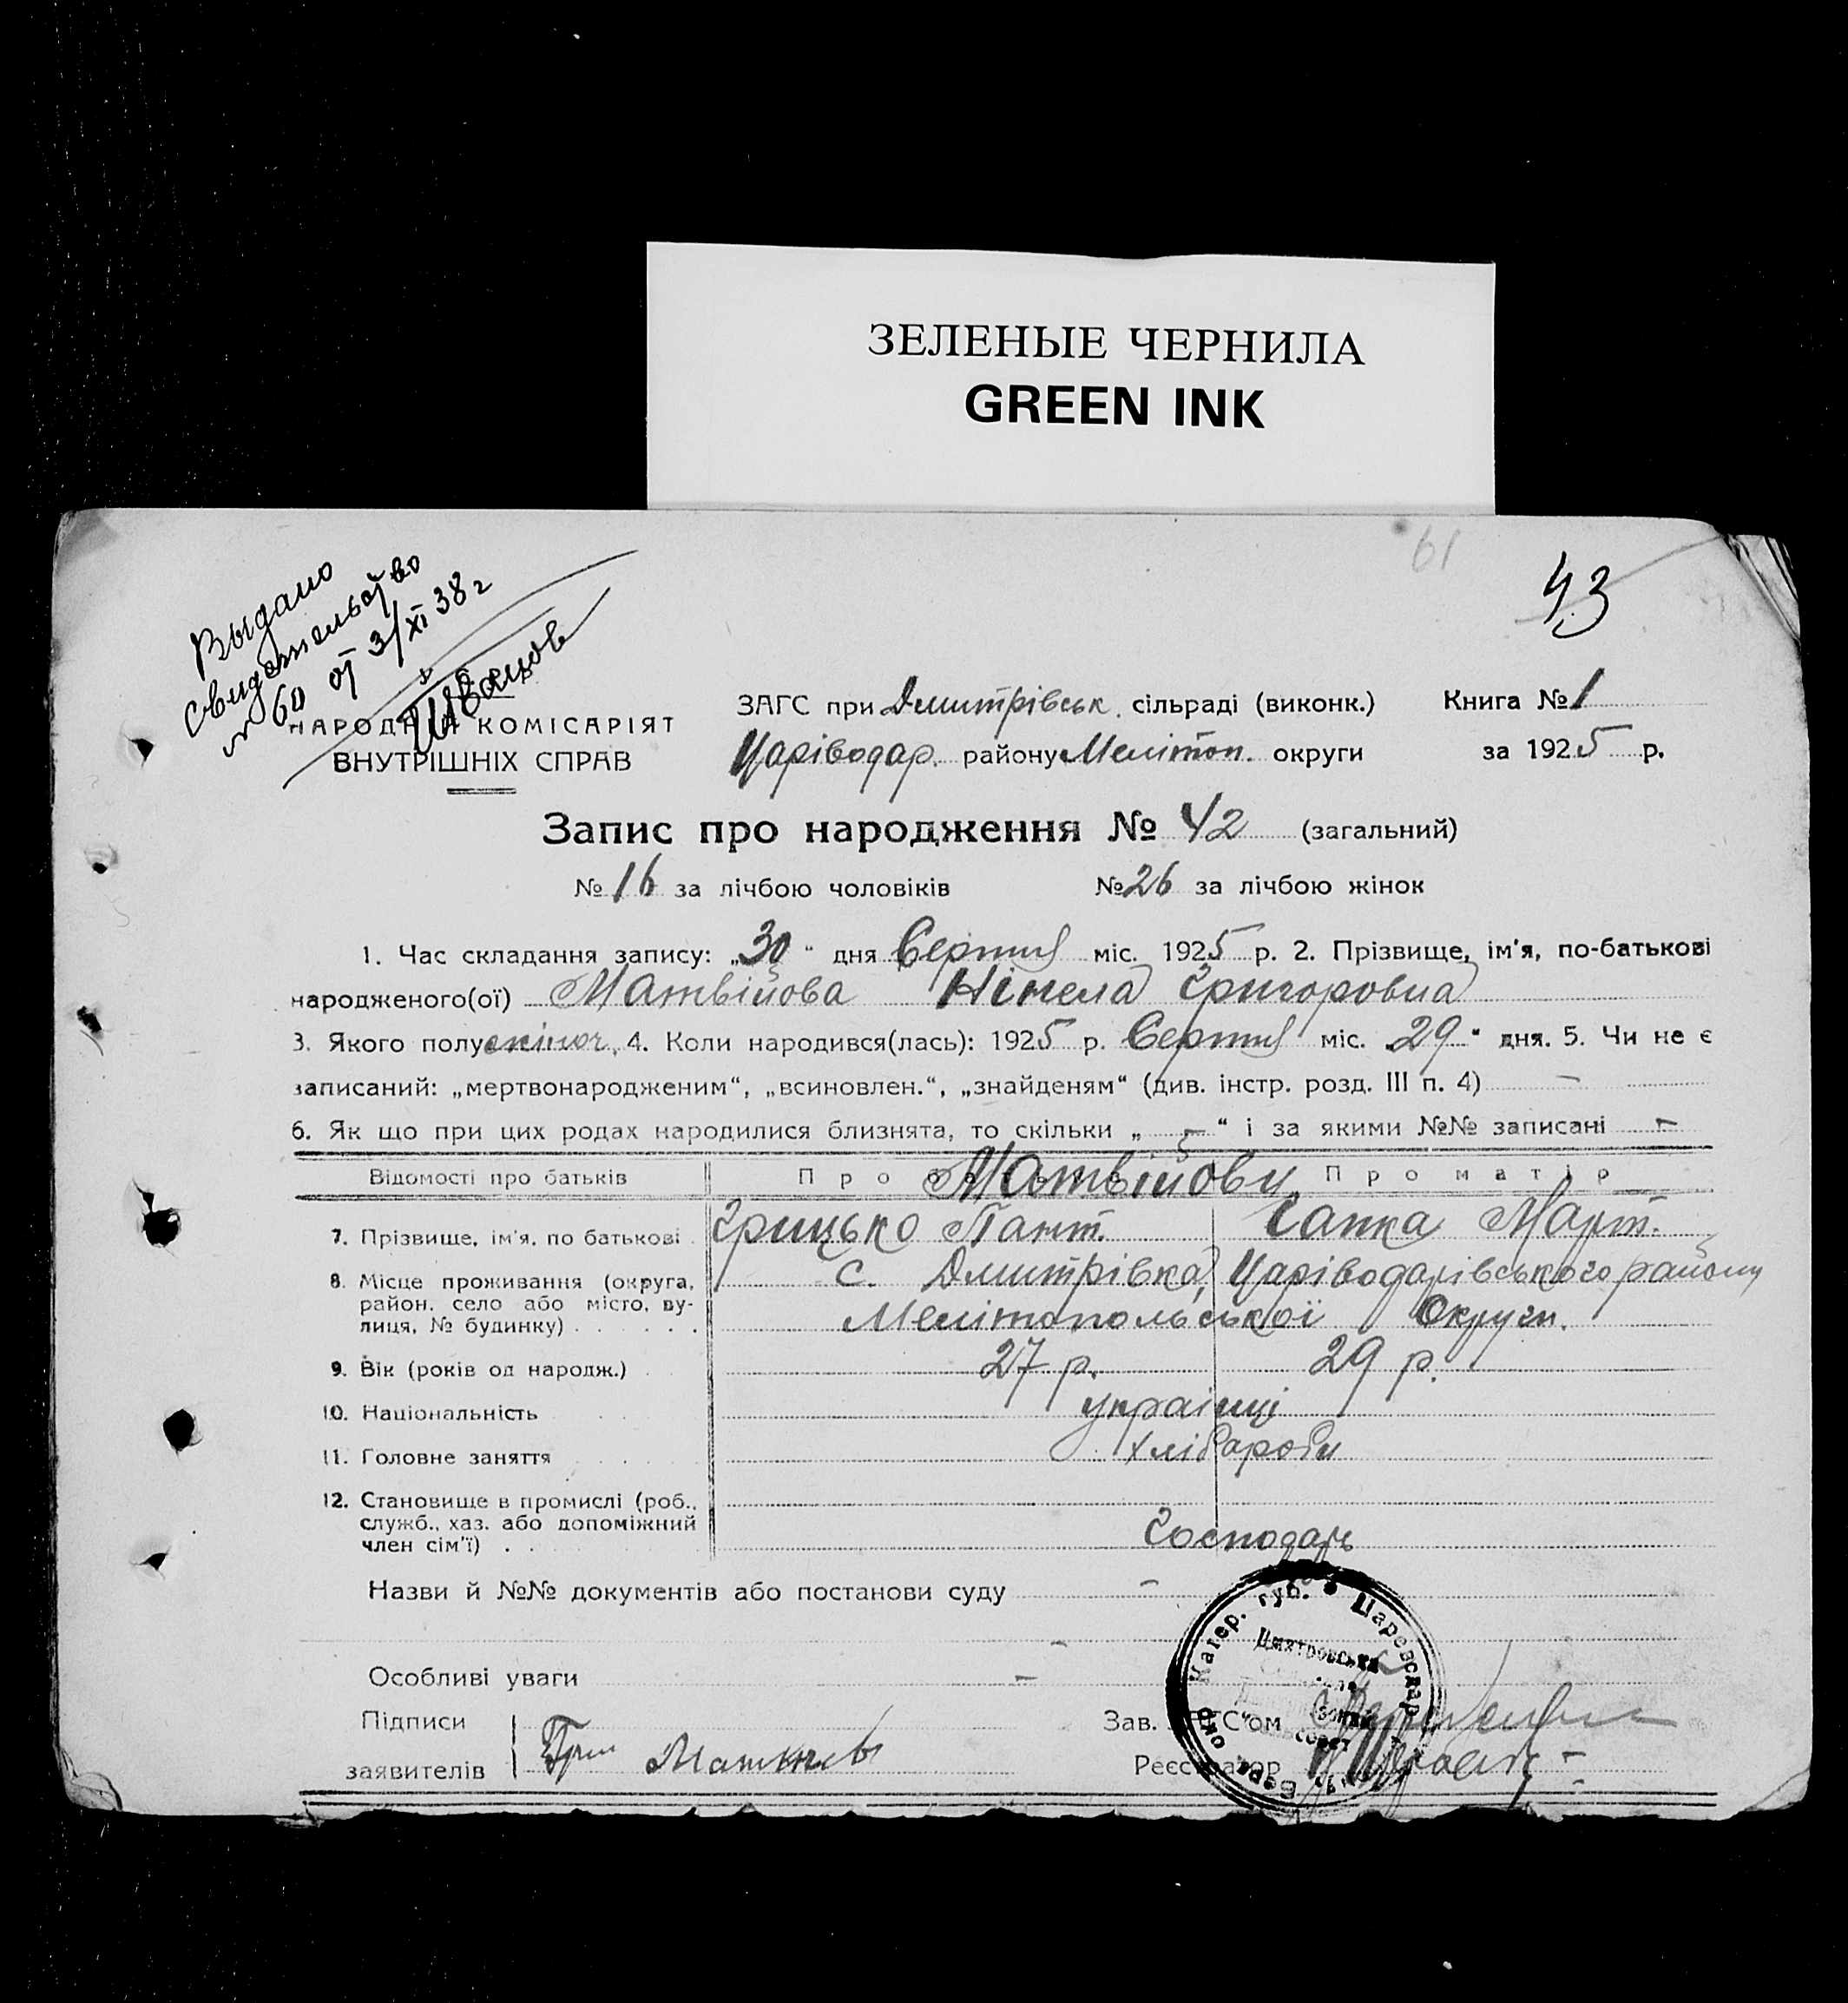 ЗЕЛЕНЫЕ ЧЕРНИЛА
GREEN INK
61
43
Выдано
свидетельство
№ 60 от 3/XI 38 г
НАРОДНИЙ КОМІСАРІЯТ
ВНУТРІШНІХ СПРАВ
ЗАГС при Дмитрівськ. сільраді (виконк.) Книга № 1
Царіводар. району Мелітоп. округи за 1925 р.
Запис про народження № 42 (загальний)
№ 16 за лічбою чоловіків № 26 за лічбою жінок
1. Час складання запису: „30“ дня Серпня міс. 1925 р. 2. Прізвище, ім'я, по-батькові
народженого(ої) Матвійова Нінела Григоровна
3. Якого полу жіноч. 4. Коли народився(лась): 1925 р. Серпня міс. „29“ дня. 5. Чи не є
записаний: „мертвонародженим“, „всиновлен.“, „знайденям“ (див. інстр. розд. III п. 4) –
6. Як що при цих родах народилися близнята, то скільки „ – “ і за якими №№ записані –
Відомості про батьків Про Матвійови Про матір
7. Прізвище, ім'я, по батькові Грицько Пант. Ганка Март.
8. Місце проживання (округа, с. Дмитрівка, Царіводарівського району
район, село або місто, ву-
лиця, № будинку) Мелітопольської Округи.
9. Вік (років од народж.) 27 р. 29 р.
10. Національність українці
11. Головне заняття хлібароби
12. Становище в промислі (роб.,
служб., хаз. або допоміжний
член сім'ї) Господарь
Назви й №№ документів або постанови суду –
–
Особливі уваги –
Підписи
заявителів Гри Матвиев
Зав. ЗАГС'ом
Реєстратор
Катер. губ. Царевдар
Дмитровська